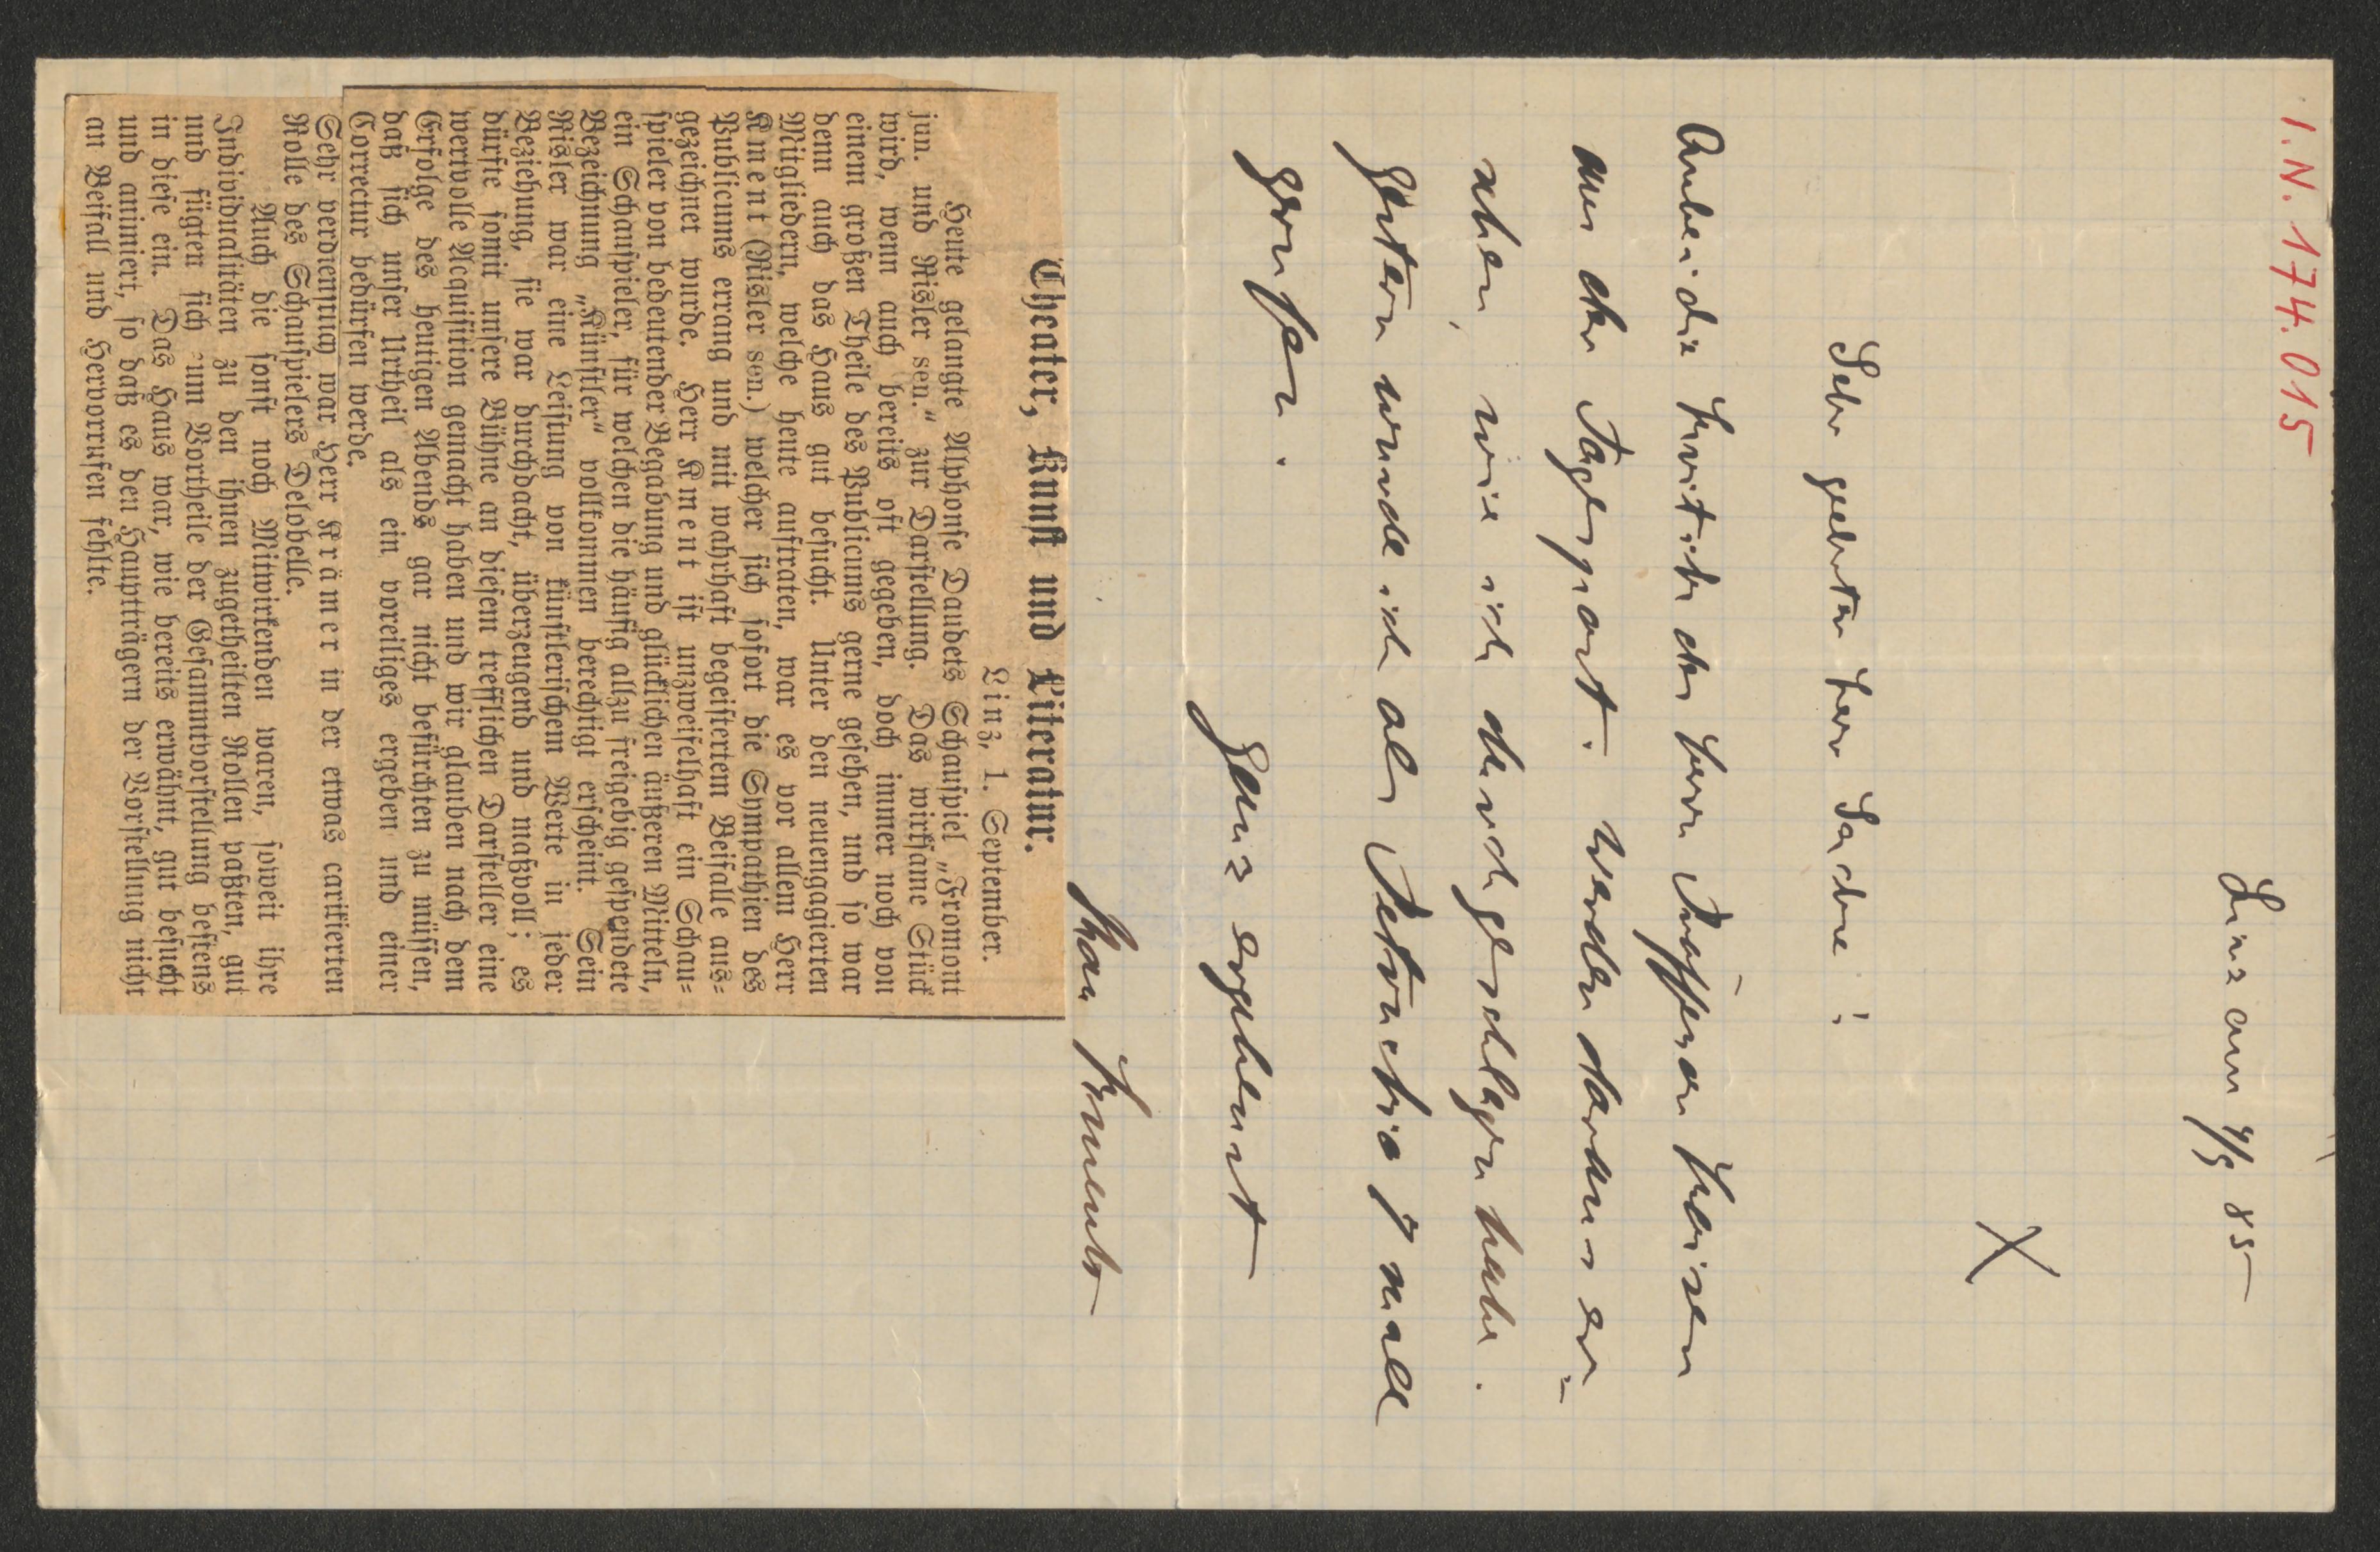 I. N. 174.015
Linz am 4/9 85
X
Sehr geehrter Herr Sachse!
Anbei die Kritik des Herrn Kaisen
aus der Tagespost. Werden daraus er-
sehen, wie ich durchgeschlagen habe.
Gestern wurde ich als Petruchio 7 mall
gerufen.
Ganz ergebenst
Max Kment
Theater, Kunst und Literatur.
Linz, 1. September.
Heute gelangte Alphonse Daudets Schauspiel „Fromont
jun. und Risler sen.“ zur Darstellung. Das wirksame Stück
wird, wenn auch bereits oft gegeben, doch immer noch von
einem großen Theile des Publicums gerne gesehen, und so war
denn auch das Haus gut besucht. Unter den neuengagierten
Mitgliedern, welche heute auftraten, war es vor allem Herr
Kment (Risler sen.) welcher sich sofort die Sympathien des
Publicums errang und mit wahrhaft begeistertem Beifalle aus-
gezeichnet wurde. Herr Kment ist unzweifelhaft ein Schau-
spieler von bedeutender Begabung und glücklichen äußeren Mitteln,
ein Schauspieler, für welchen die häufig allzu freigebig gespendete
Bezeichnung „Künstler“ vollkommen berechtigt erscheint. Sein
Risler war eine Leistung von künstlerischem Werte in jeder
Beziehung, sie war durchdacht, überzeugend und maßvoll; es
dürfte somit unsere Bühne an diesem trefflichen Darsteller eine
wertvolle Acquisition gemacht haben und wir glauben nach dem
Erfolge des heutigen Abends gar nicht befürchten zu müssen,
daß sich unser Urtheil als ein voreiliges ergeben und einer
Correctur bedürfen werde.
Sehr verdienstlich war Herr Krämer in der etwas carikierten
Rolle des Schauspielers Delobelle.
Auch die sonst noch Mitwirkenden waren, soweit ihre
Individualitäten zu den ihnen zugetheilten Rollen paßten, gut
und fügten sich zum Vortheile der Gesammtvorstellung bestens
in diese ein. Das Haus war, wie bereits erwähnt, gut besucht
und animiert, so daß es den Hauptträgern der Vorstellung nicht
an Beifall und Hervorrufen fehlte.